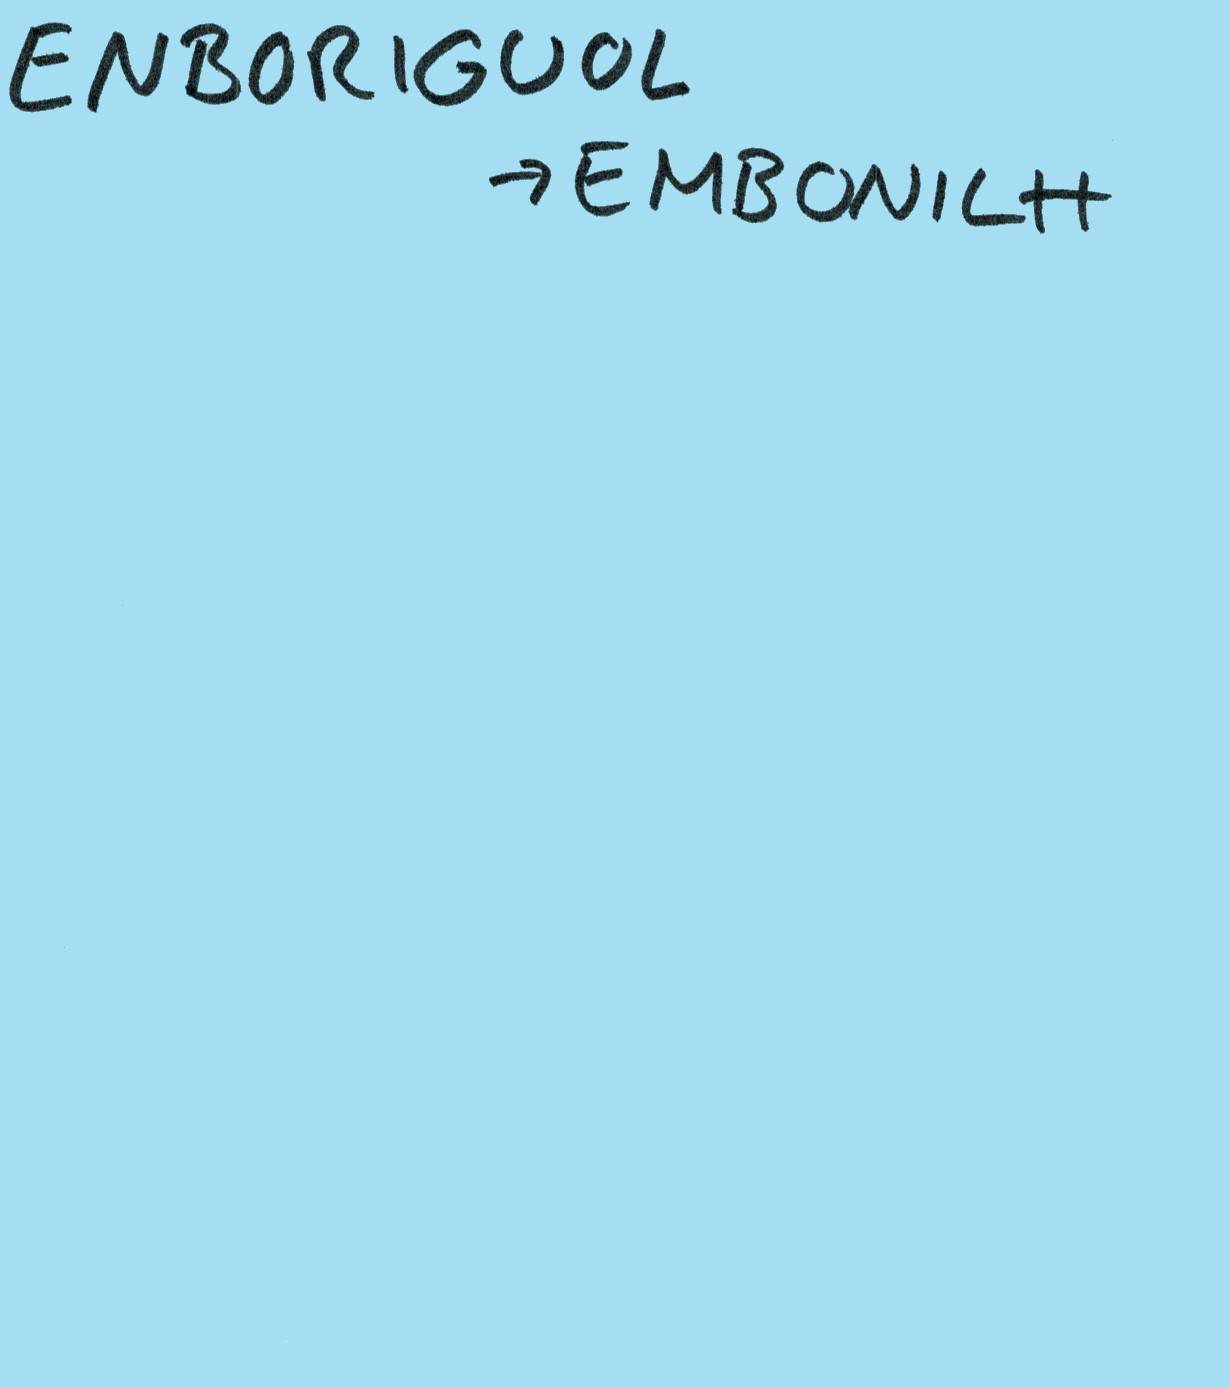 ENBORIGUOL
→ EMBONILH